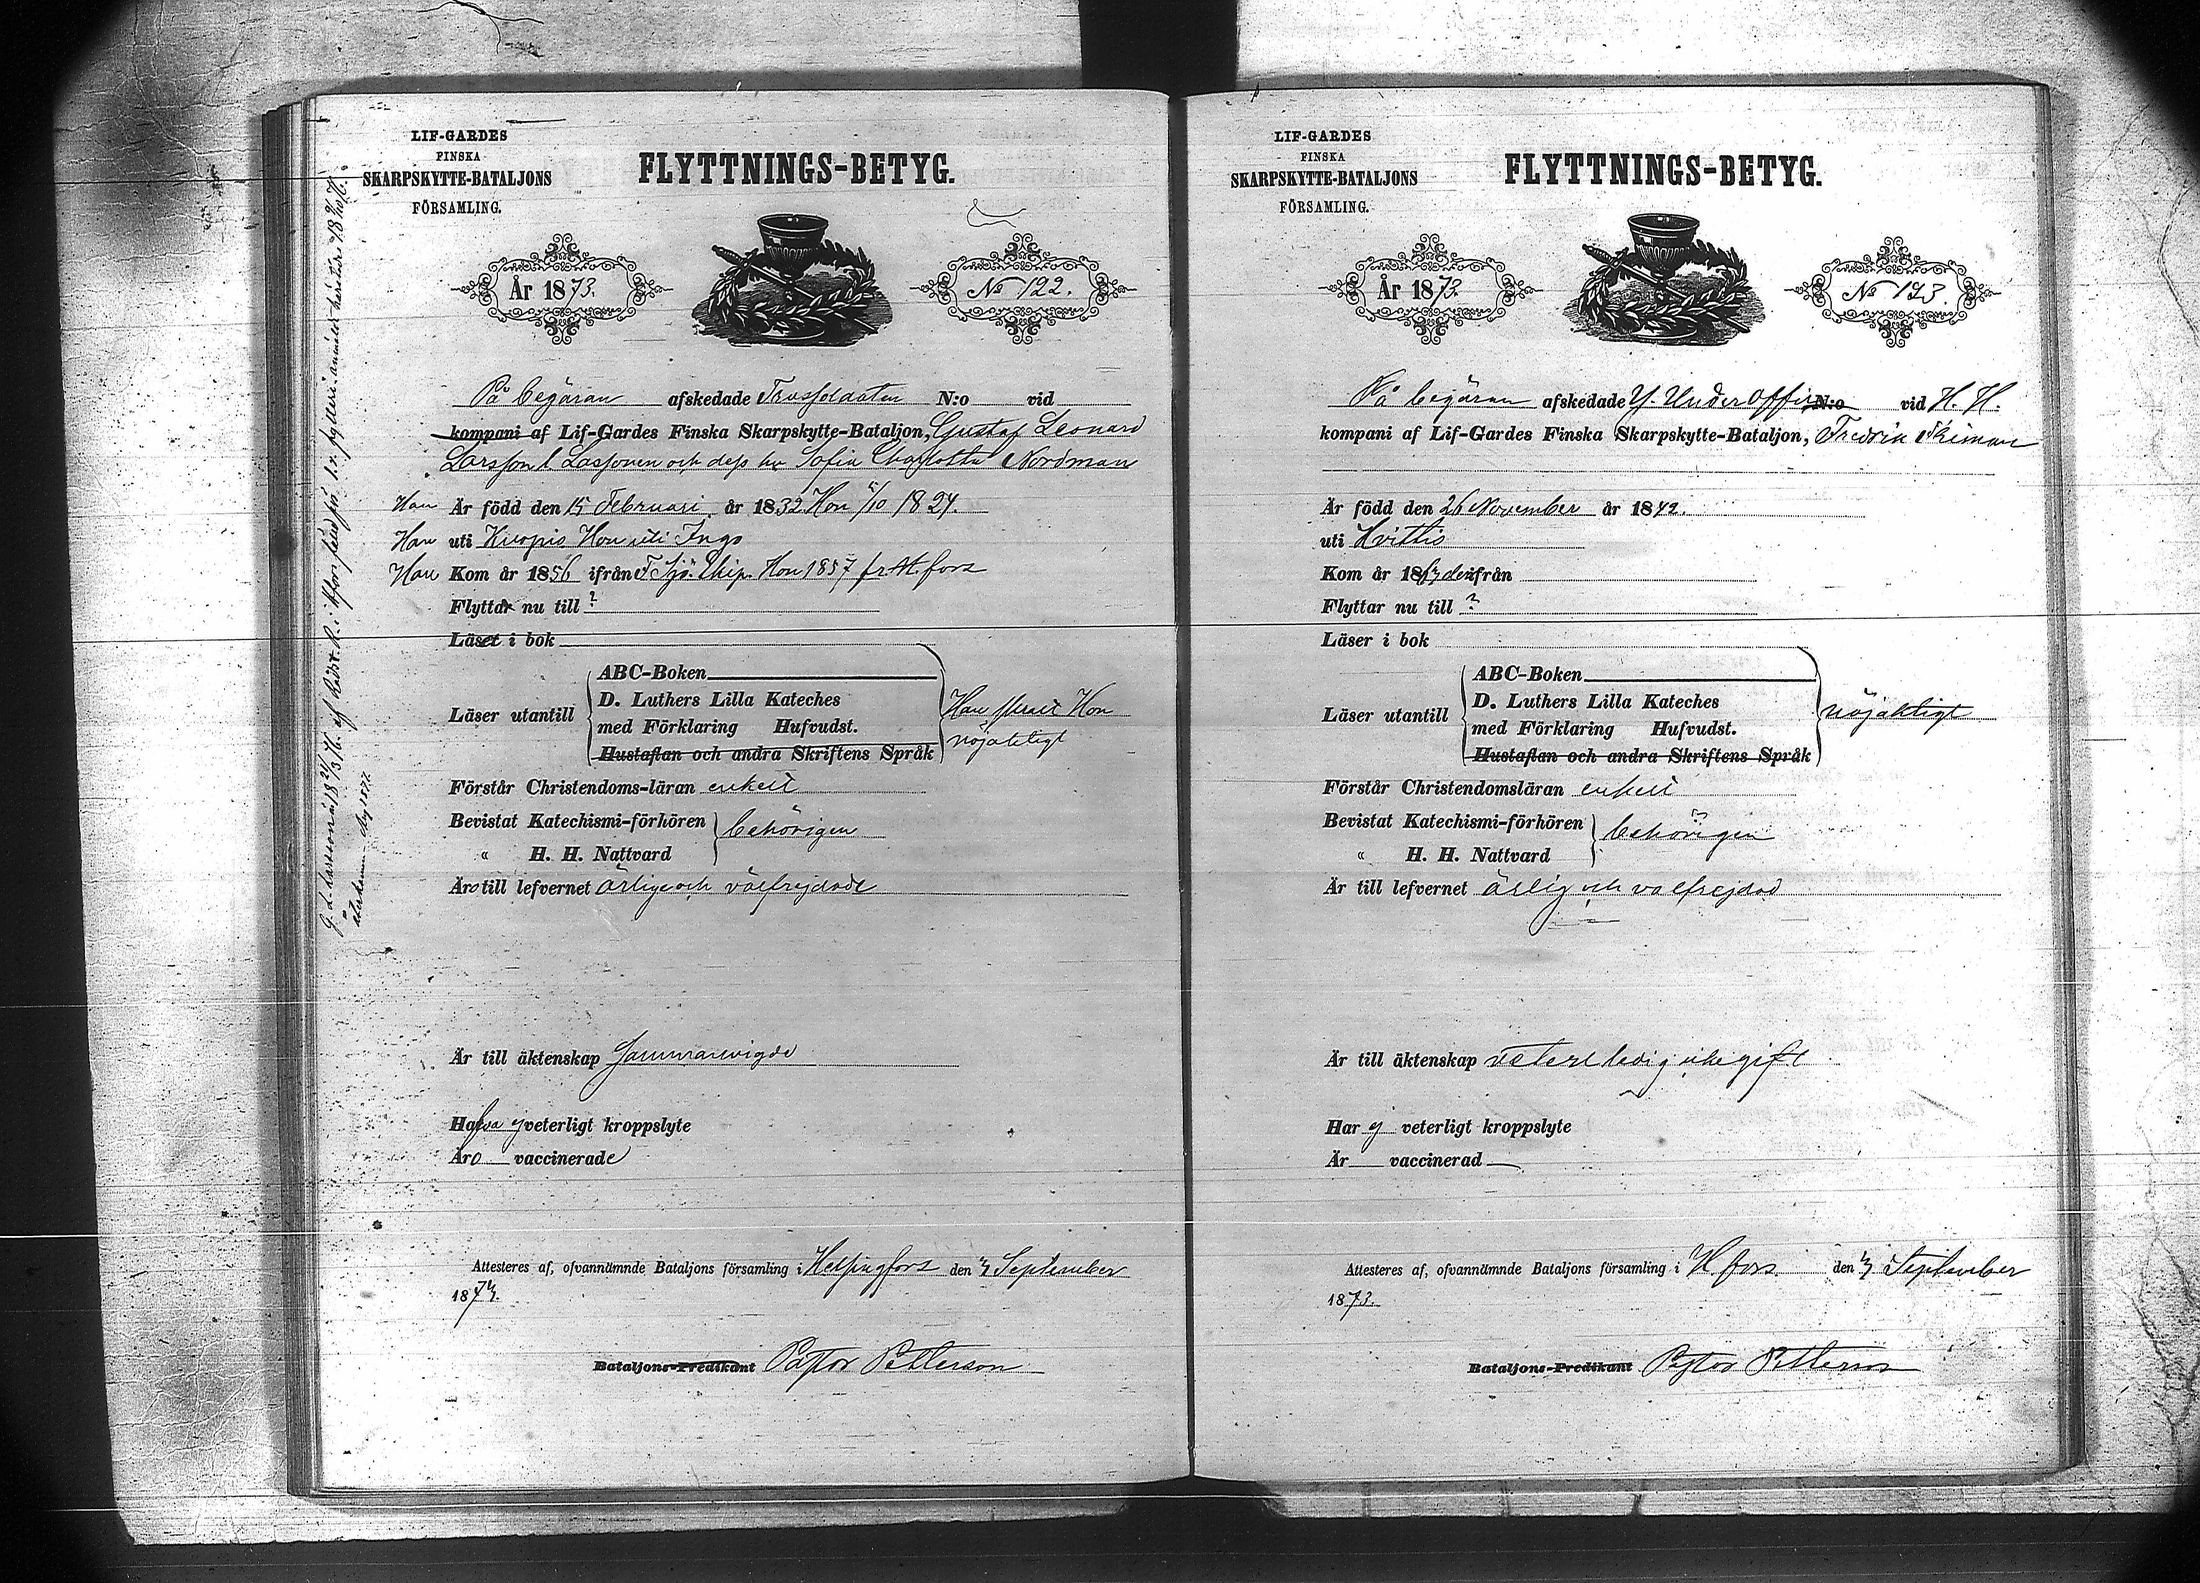 LIF-GARDES
FINSKA
SKARPSKYTTE-BATALJONS
FÖRSAMLING.
FLYTTNINGS-BETYG.
År 1873.
No 122.
På begäran afskedade Trossoldaten N:o vid
kompani af Lif-Gardes Finska Skarpskytte-Bataljon, Gustaf Leonard
Larsson l. Lassonen och dess hu Sofia Charlotta Nordman
Han Är född den 15 Februari år 1832 Hon 5/10 1824.
Han uti Kuopio Hon uti Ingo
Han Kom år 1856 ifrån F. Sjö. Ekip. Hon 1857 fr. H.fors
Flyttar nu till ?
Läser i bok
ABC-Boken
Läser utantill D. Luthers Lilla Kateches
med Förklaring Hufvudst.
Hustaflan och andra Skriftens Språk
Han svart Hon
nöjaktigt
Förstår Christendoms-läran enkelt
Bevistat Katechismi-förhören behörigen
" H. H. Nattvard
Äro till lefvernet ärlige och välfrejdade
Är till äktenskap Sammanvigde
Hafva ej veterligt kroppslyte
Äro vaccinerade
Attesteres af, ofvannämnde Bataljons församling i Helsingfors den 3/ September
1873.
Bataljons-Predikant Pastor Petterson
G. L. Larsson
återkom
LIF-GARDES
FINSKA
SKARPSKYTTE-BATALJONS
FÖRSAMLING.
FLYTTNINGS-BETYG.
År 1873.
No 123.
På begäran afskedade Y. Under Offic N:o vid H. H.
kompani af Lif-Gardes Finska Skarpskytte-Bataljon, Fredrik
Är född den 26 November år 1842.
uti Hvittis
Kom år 1863 den ifrån
Flyttar nu till ?
Läser i bok
ABC-Boken
Läser utantill D. Luthers Lilla Kateches
med Förklaring Hufvudst.
Hustaflan och andra Skriftens Språk
nöjaktigt
Förstår Christendomsläran enkelt
Bevistat Katechismi-förhören behörigen
" H. H. Nattvard
Är till lefvernet ärlig och valfrejdad
Är till äktenskap veterl ledig icke gift
Har ej veterligt kroppslyte
Är vaccinerad
Attesteres af, ofvannämnde Bataljons församling i H.fors. den 3/ September
1873.
Bataljons-Predikant Pastor Petterson